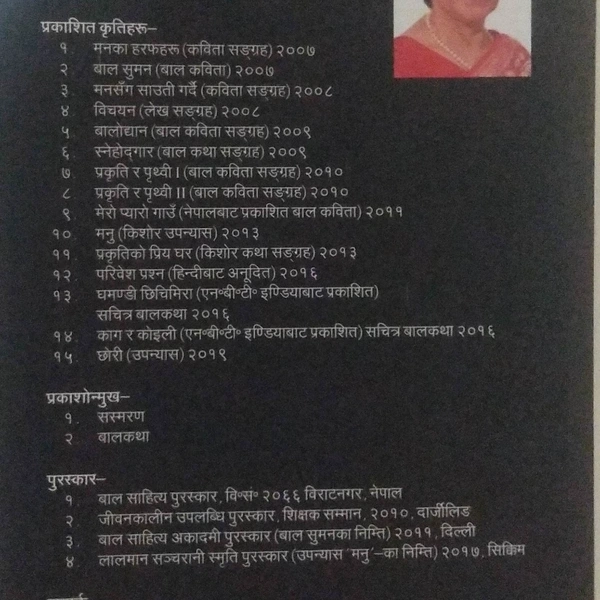 प्रकाशित कृतिहरू–
१. मनका हरफहरू (कविता सङ्ग्रह) २००७
२ बाल सुमन (बाल कविता) २००७
३ मनसँग साउती गर्दै (कविता सङ्ग्रह) २००८
४ विचयन (लेख सङ्ग्रह) २००८
५ बालोद्यान (बाल कविता सङ्ग्रह) २००९
६ स्नेहोद्गार (बाल कथा सङ्ग्रह) २००९
७ प्रकृति र पृथ्वी I (बाल कविता सङ्ग्रह) २०१०
८ प्रकृति र पृथ्वी II (बाल कविता सङ्ग्रह) २०१०
९ मेरो प्यारो गाउँ (नेपालबाट प्रकाशित बाल कविता) २०११
१० मनु (किशोर उपन्यास) २०१३
११. प्रकृतिको प्रिय घर (किशोर कथा सङ्ग्रह) २०१३
१२. परिवेश प्रश्न (हिन्दीबाट अनूदित) २०१६
१३ घमण्डी छिचिमिरा (एन॰बी॰टी॰ इण्डियाबाट प्रकाशित)
सचित्र बालकथा २०१६
१४ काग र कोइली (एन॰बी॰टी॰ इण्डियाबाट प्रकाशित) सचित्र बालकथा २०१६
१५ छोरी (उपन्यास) २०१९
प्रकाशोन्मुख–
१. सस्मरण
२ बालकथा
पुरस्कार–
१. बाल साहित्य पुरस्कार, वि॰सं॰ २०६६ विराटनगर, नेपाल
२ जीवनकालीन उपलब्धि पुरस्कार, शिक्षक सम्मान, २०१०, दार्जीलिङ
३. बाल साहित्य अकादमी पुरस्कार (बाल सुमनका निम्ति) २०११, दिल्ली
४ लालमान सञ्चरानी स्मृति पुरस्कार (उपन्यास 'मनु'–का निम्ति) २०१७, सिक्किम